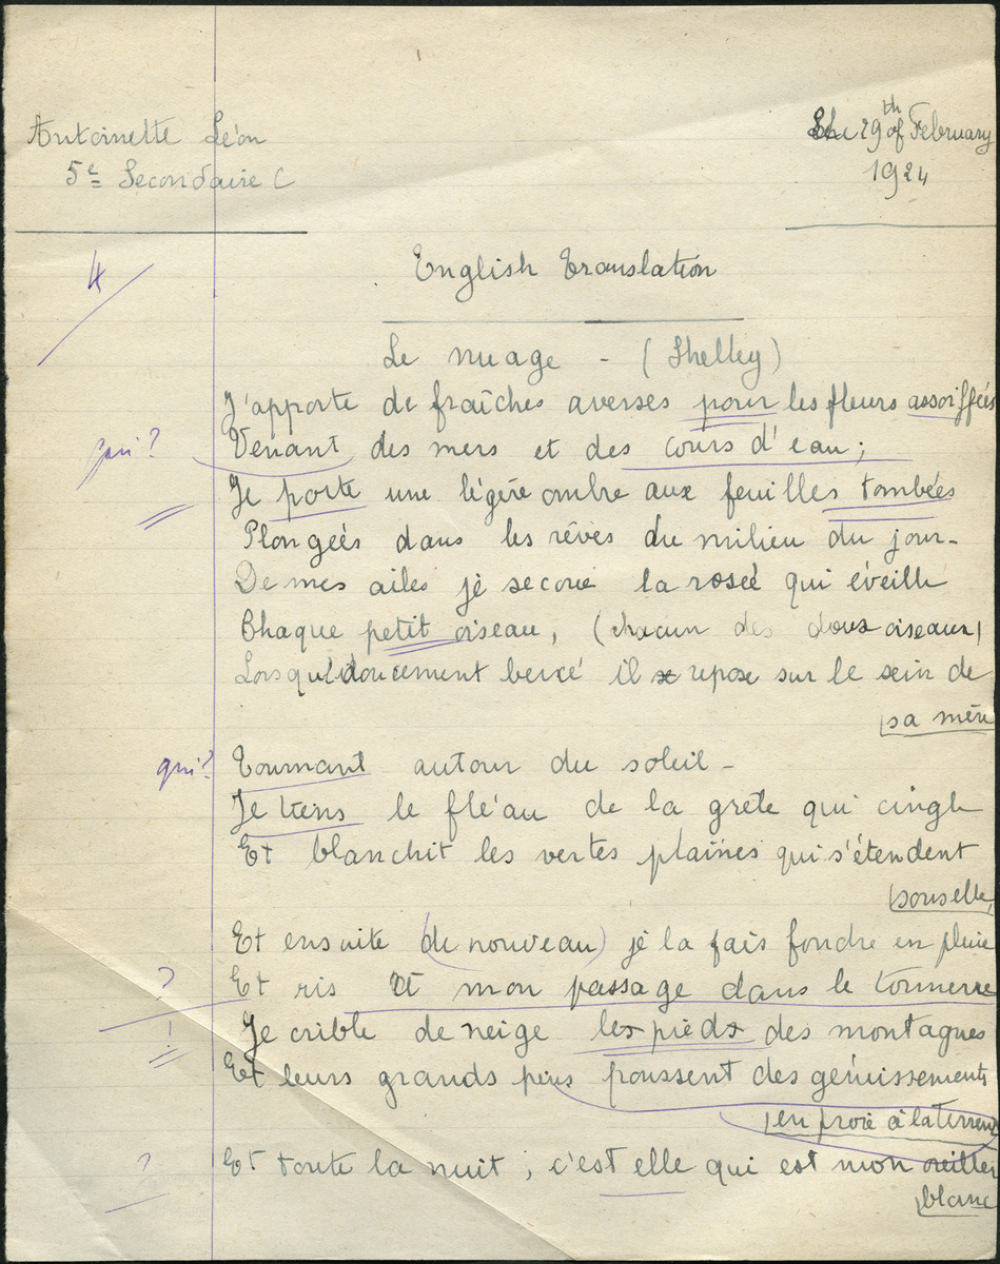 Antoinette Léon
5e Secondaire C
the 29th of February
1924
4
English translation
Le nuage - (Shelley)
J'apporte de fraîches averses pour les fleurs assoiffées
qui? Venant des mers et des cours d'eau;
Je porte une légère ombre aux feuilles tombées
Plongées dans les rêves du milieu du jour-
De mes ailes je secoue la rosée qui éveille
Chaque petit oiseau, (chacun des doux oiseaux)
Lorsqu'doucement bercé il repose sur le sein de
sa mère
qui? Tournant autour du soleil -
Je tiens le fléau de la grêle qui cingle
Et blanchit les vertes plaines qui s'étendent
sous elle,
Et ensuite (de nouveau) je la fais fondre en pluie
? Et ris à mon passage dans le tonnerre
! Je crible de neige les pieds des montagnes
Et leurs grands pins poussent des gémissements
en proie à la terreur
? Et toute la nuit, c'est elle qui est mon oreiller
blanc